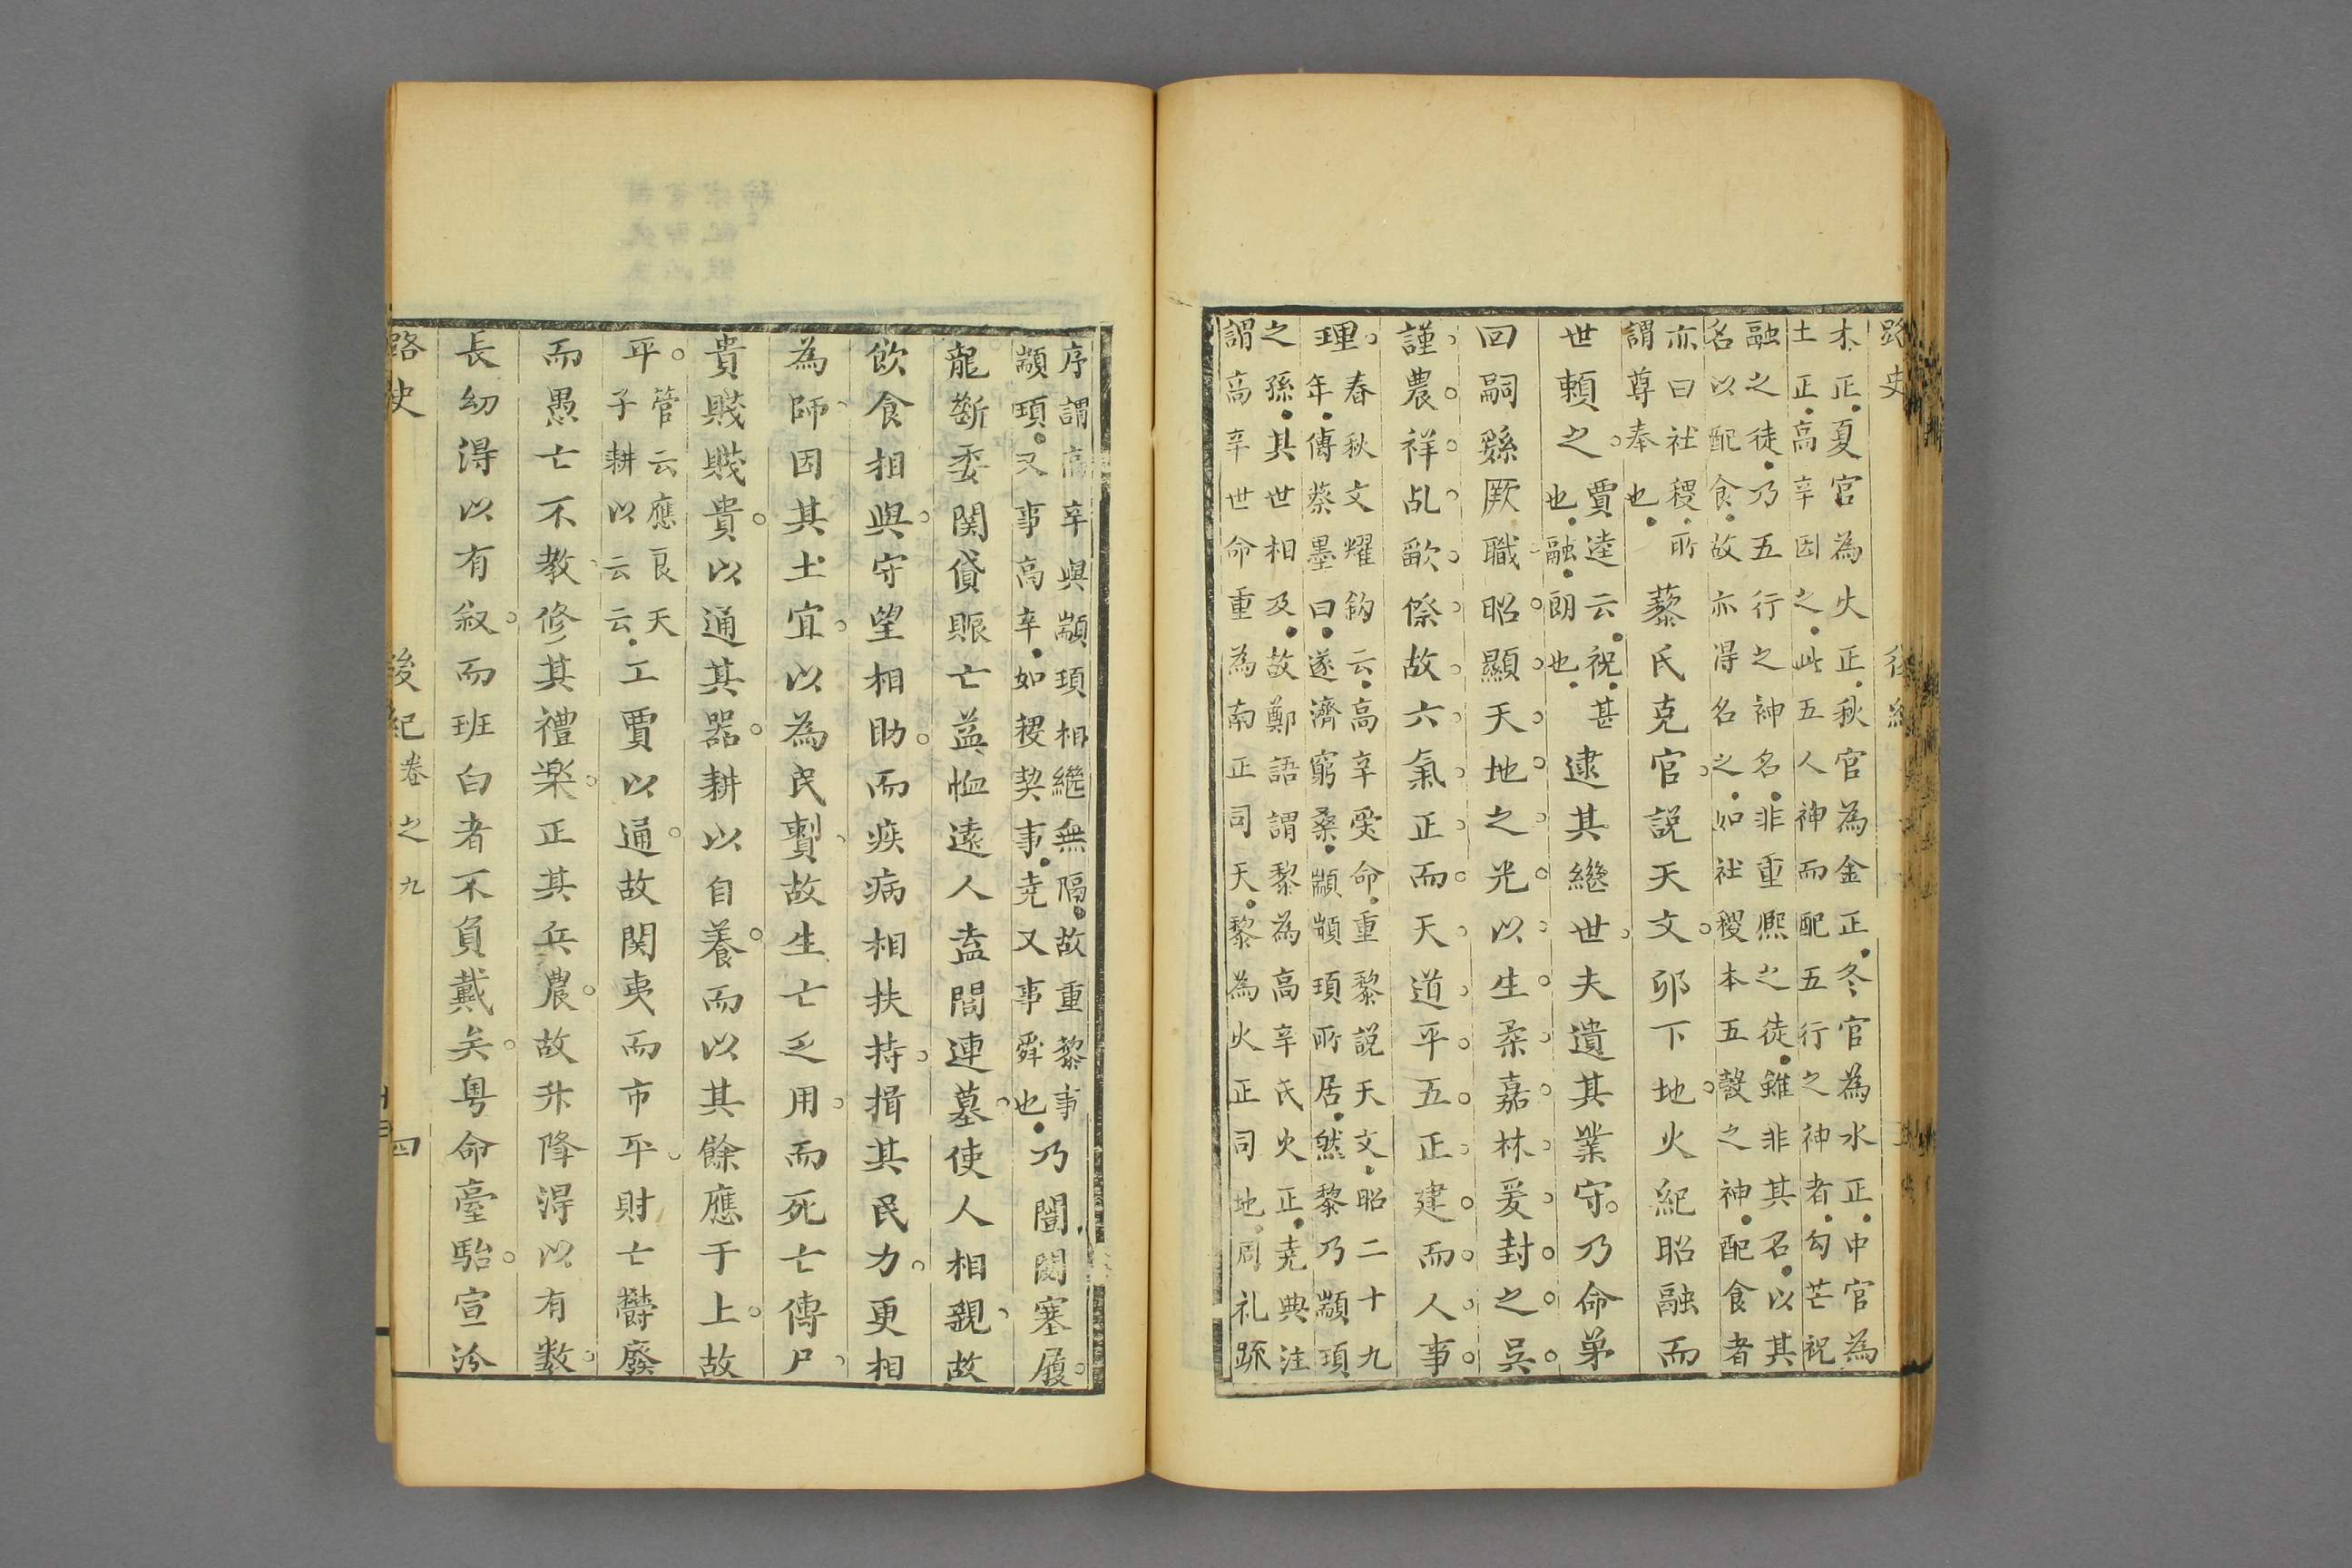 路史
木正夏官為火正秋官為金正冬官為水正中官為
土正高辛因之此五人神而配五行之神者勾芒祝
融之徒乃五行之神名非重熈之徒雖非其名以其
名以配食故亦得名之如社稷本五穀之神配食者
亦曰社稷所
謂尊奉也
藜氏克官說天文卯下地火紀昭融而
世頼之
賈逵云祝甚
也融朗也
逮其繼世夫遺其業守乃命弟
回嗣繇厥職昭顯天地之光以生柔嘉林爰封之吳
謹農祥乩歠傺故六氣正而天道平五正建而人事
理
春秋文耀鈎云高辛受命重黎說天文昭二十九
年傳蔡墨曰遂濟窮桑顓頊所居然黎乃顓頊
之孫其世相及故鄭語謂黎為高辛氏火正堯典注
謂高辛世命重為南正司天黎為火正司地周礼䟽
序謂高辛與顓頊相繼無隔故重黎事
顓頊又事高辛如稷契事堯又事舜也
乃闓閡塞履
龍斲委関貸賑亡益恤遠人盍閭連墓使人相親故
飲食相與守望相助而疾病相扶持揖其民力更相
為師因其土宜以為民㓼故生亡乏用而死亡傳尸
貴賤賤貴以通其器耕以自養而以其餘應于上故
平
管云應良天
子耕以云云
工賈以通故関夷而市平財亡欝廢
而愚亡不教修其禮楽正其兵農故升降淂以有数
長幼淂以有叙而班白者不負戴矣粤命臺駘宣汾
路史 後紀卷之九 四